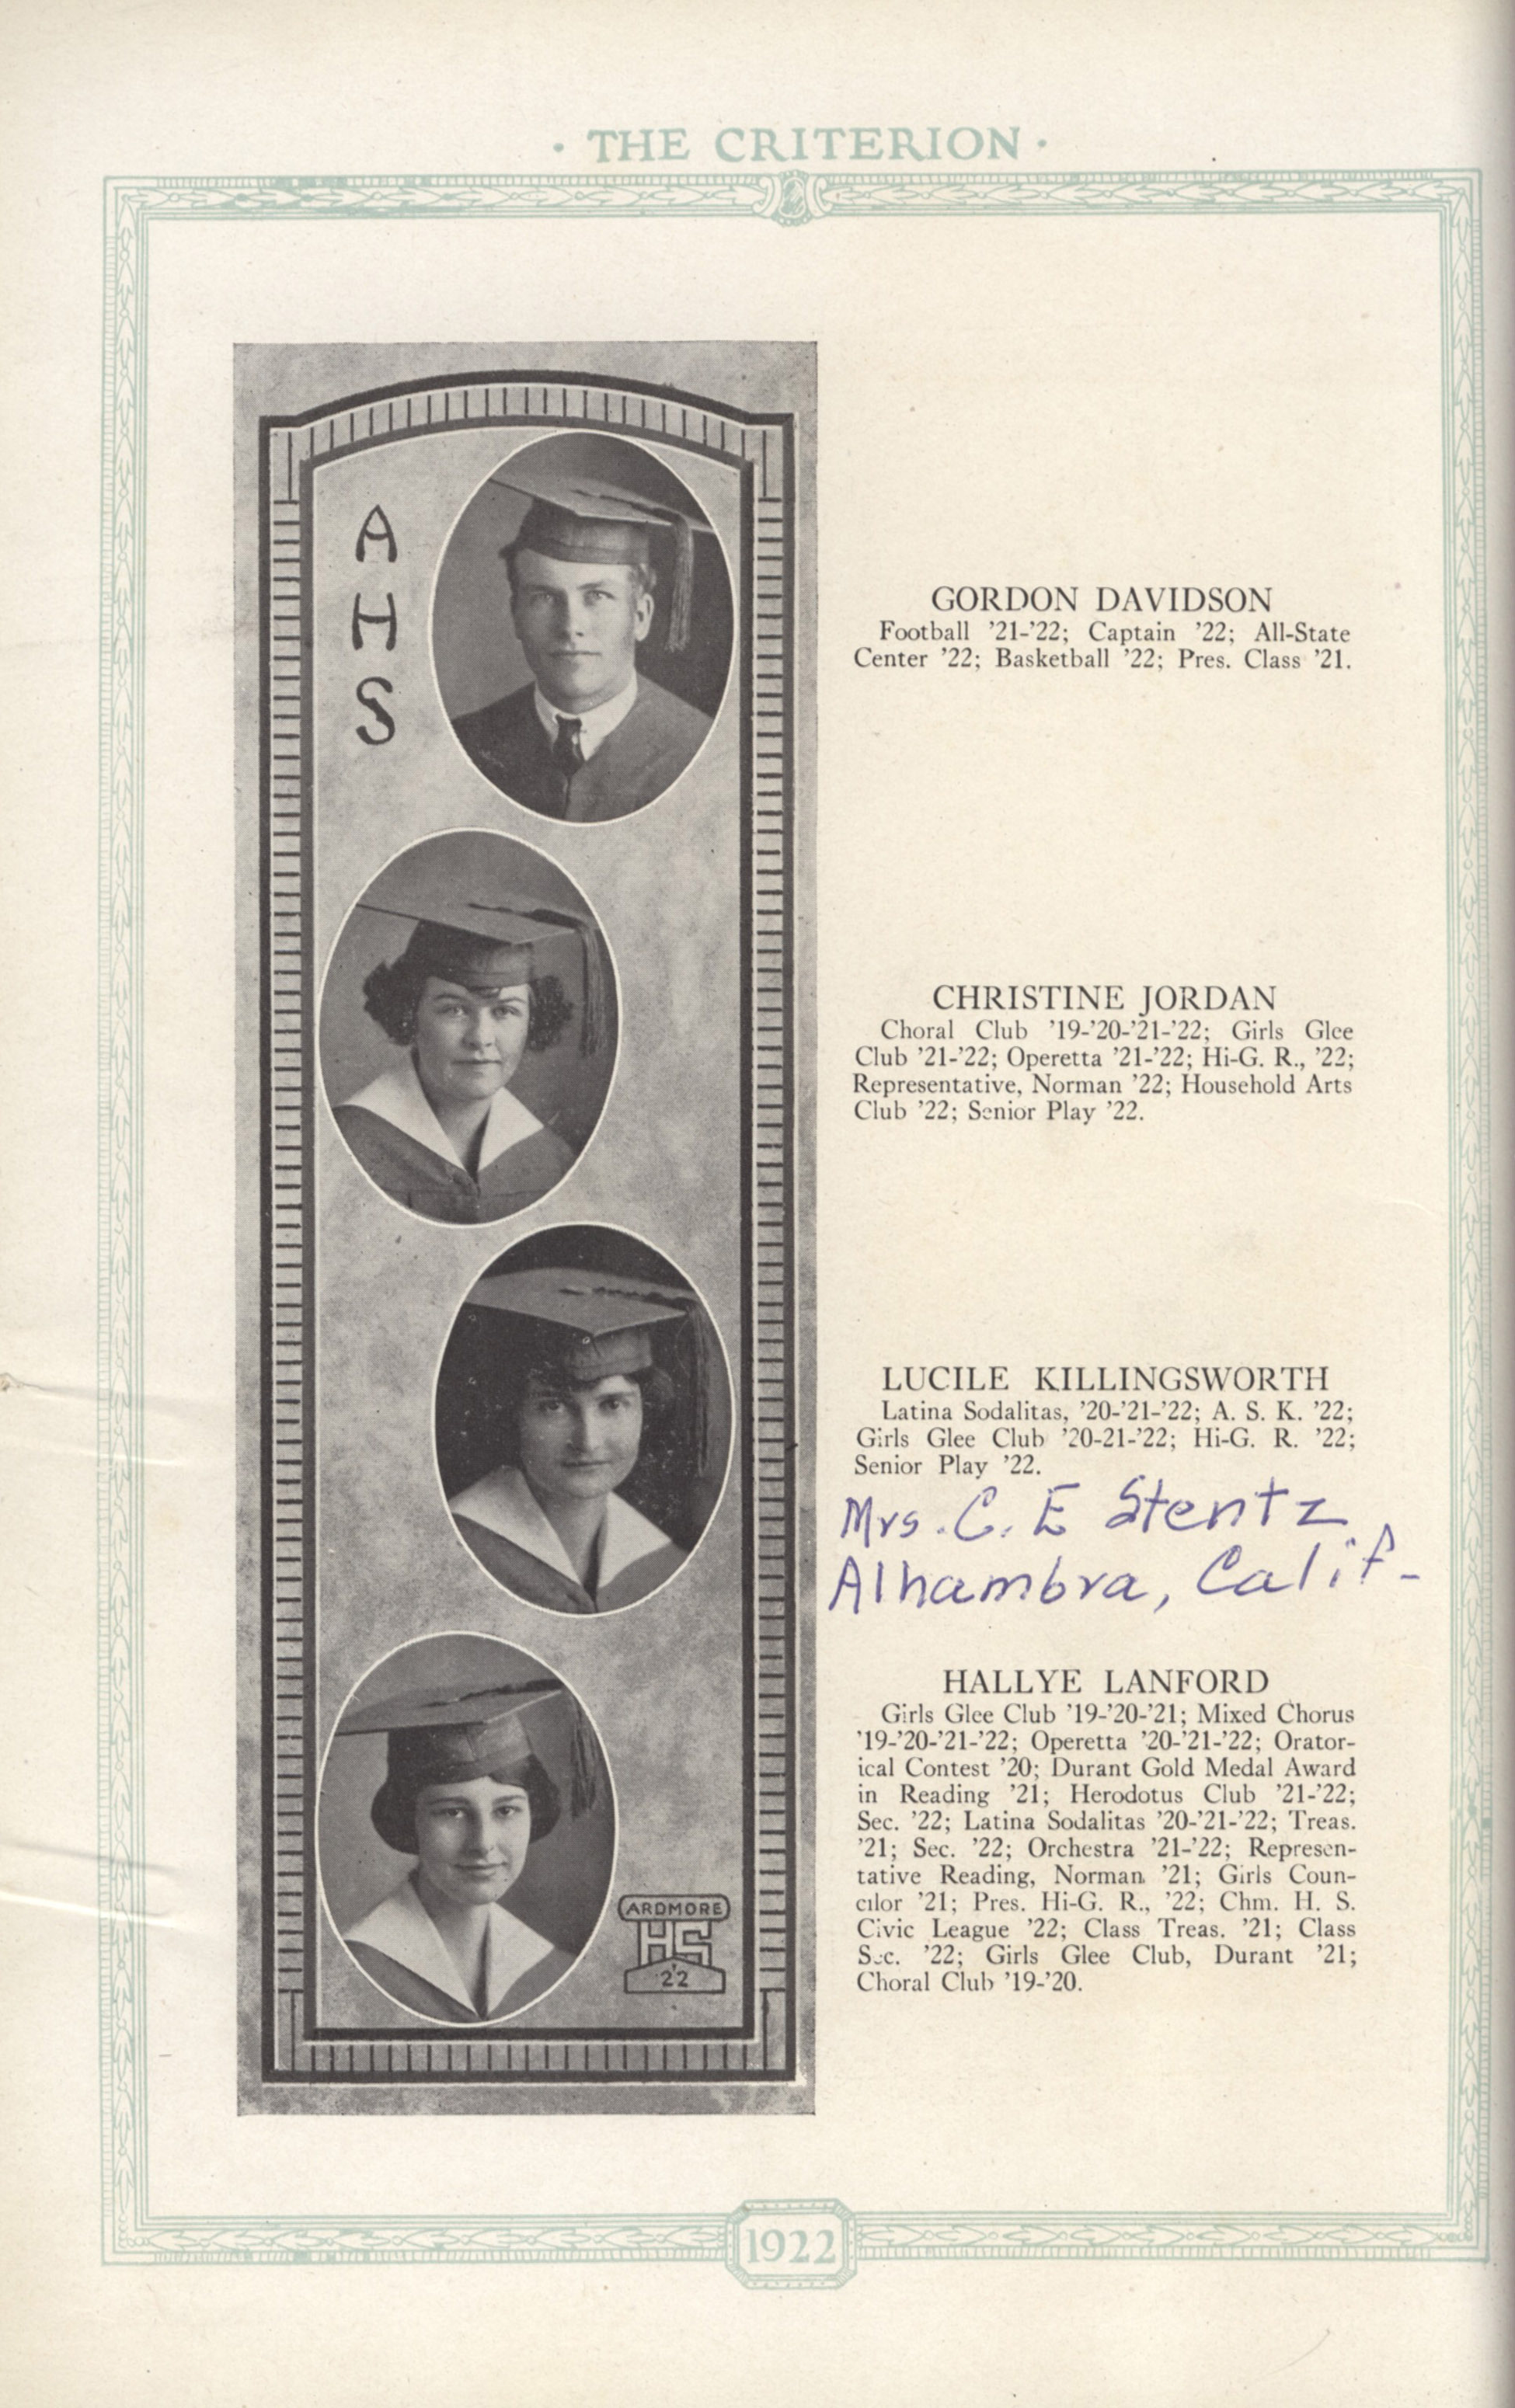 · THE CRITERION ·
A
H
S
GORDON DAVIDSON
Football '21-'22; Captain '22; All-State
Center '22; Basketball '22; Pres. Class '21.
CHRISTINE JORDAN
Choral Club '19-'20-'21-'22; Girls Glee
Club '21-'22; Operetta '21-'22; Hi-G. R., '22;
Representative, Norman '22; Household Arts
Club '22; Senior Play '22.
LUCILE KILLINGSWORTH
Latina Sodalitas, '20-'21-'22; A. S. K. '22;
Girls Glee Club '20-21-'22; Hi-G. R. '22;
Senior Play '22.
Mrs. C. E Stentz
Alhambra, Calif-
HALLYE LANFORD
Girls Glee Club '19-'20-'21; Mixed Chorus
'19-'20-'21-'22; Operetta '20-'21-'22; Orator-
ical Contest '20; Durant Gold Medal Award
in Reading '21; Herodotus Club '21-'22;
Sec. '22; Latina Sodalitas '20-'21-'22; Treas.
'21; Sec. '22; Orchestra '21-'22; Represen-
tative Reading, Norman '21; Girls Coun-
cilor '21; Pres. Hi-G. R., '22; Chm. H. S.
Civic League '22; Class Treas. '21; Class
Sec. '22; Girls Glee Club, Durant '21;
Choral Club '19-'20.
ARDMORE
HS
'22
1922